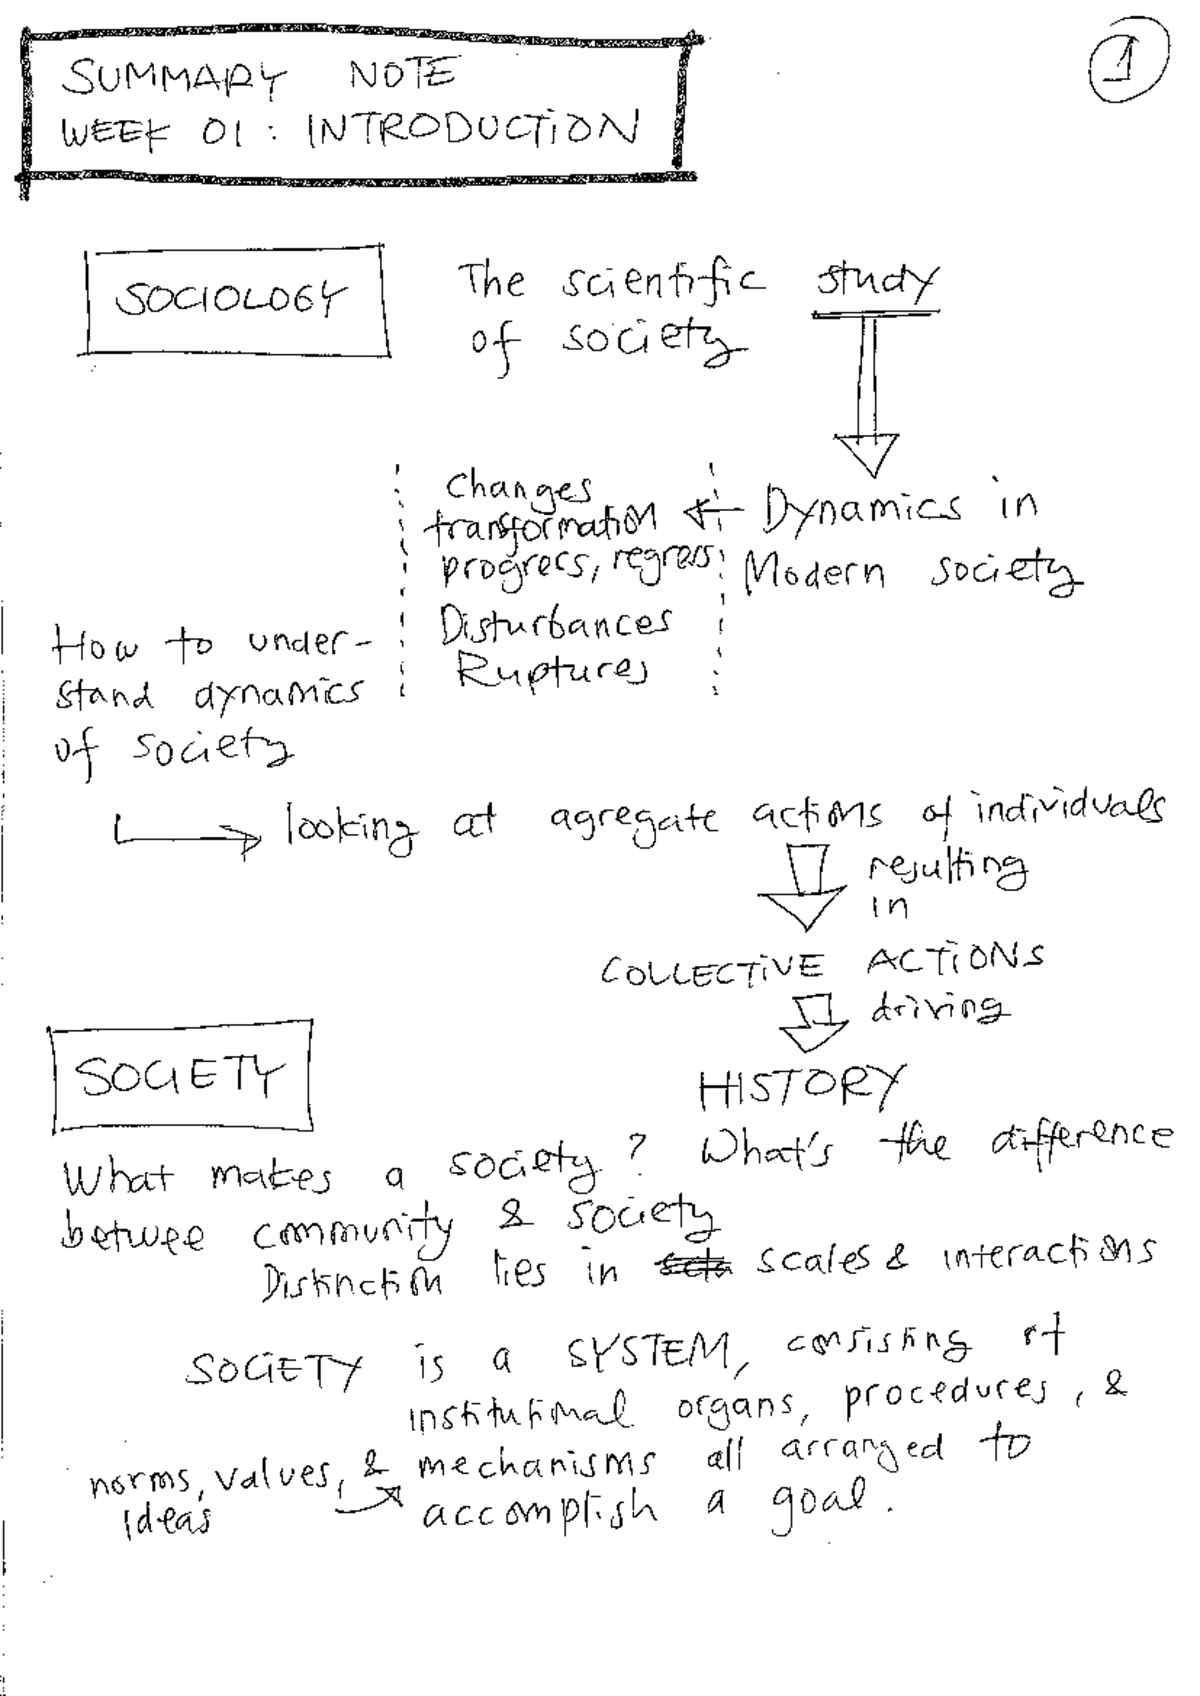 1
SUMMARY NOTE
WEEK 01: INTRODUCTION
SOCIOLOGY
The scientific study
of society
Changes
transformation
progress, regress
Disturbances
Ruptures
Dynamics in
Modern society
How to under-
stand dynamics
of society
looking at agregate actions of individuals
resulting
in
COLLECTIVE ACTIONS
driving
HISTORY
SOCIETY
What makes a society? What's the difference
betwee community & society
Distinction lies in scales & interactions
SOCIETY is a SYSTEM, consisting of
institutional organs, procedures, &
norms, values, & mechanisms all arranged to
ideas accomplish a goal.